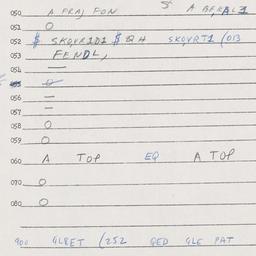 050 A FRAJ FON A BERAL1
051 O
052 $ SKQVR1D1 $ QH SKQVRT1 (013
053 FENDL,
054 —
055 O
056 —
057 —
058 O
059 O
060 A TOP EQ A TOP
070 O
080 O
900 GLBET (252 QED GLE PAT